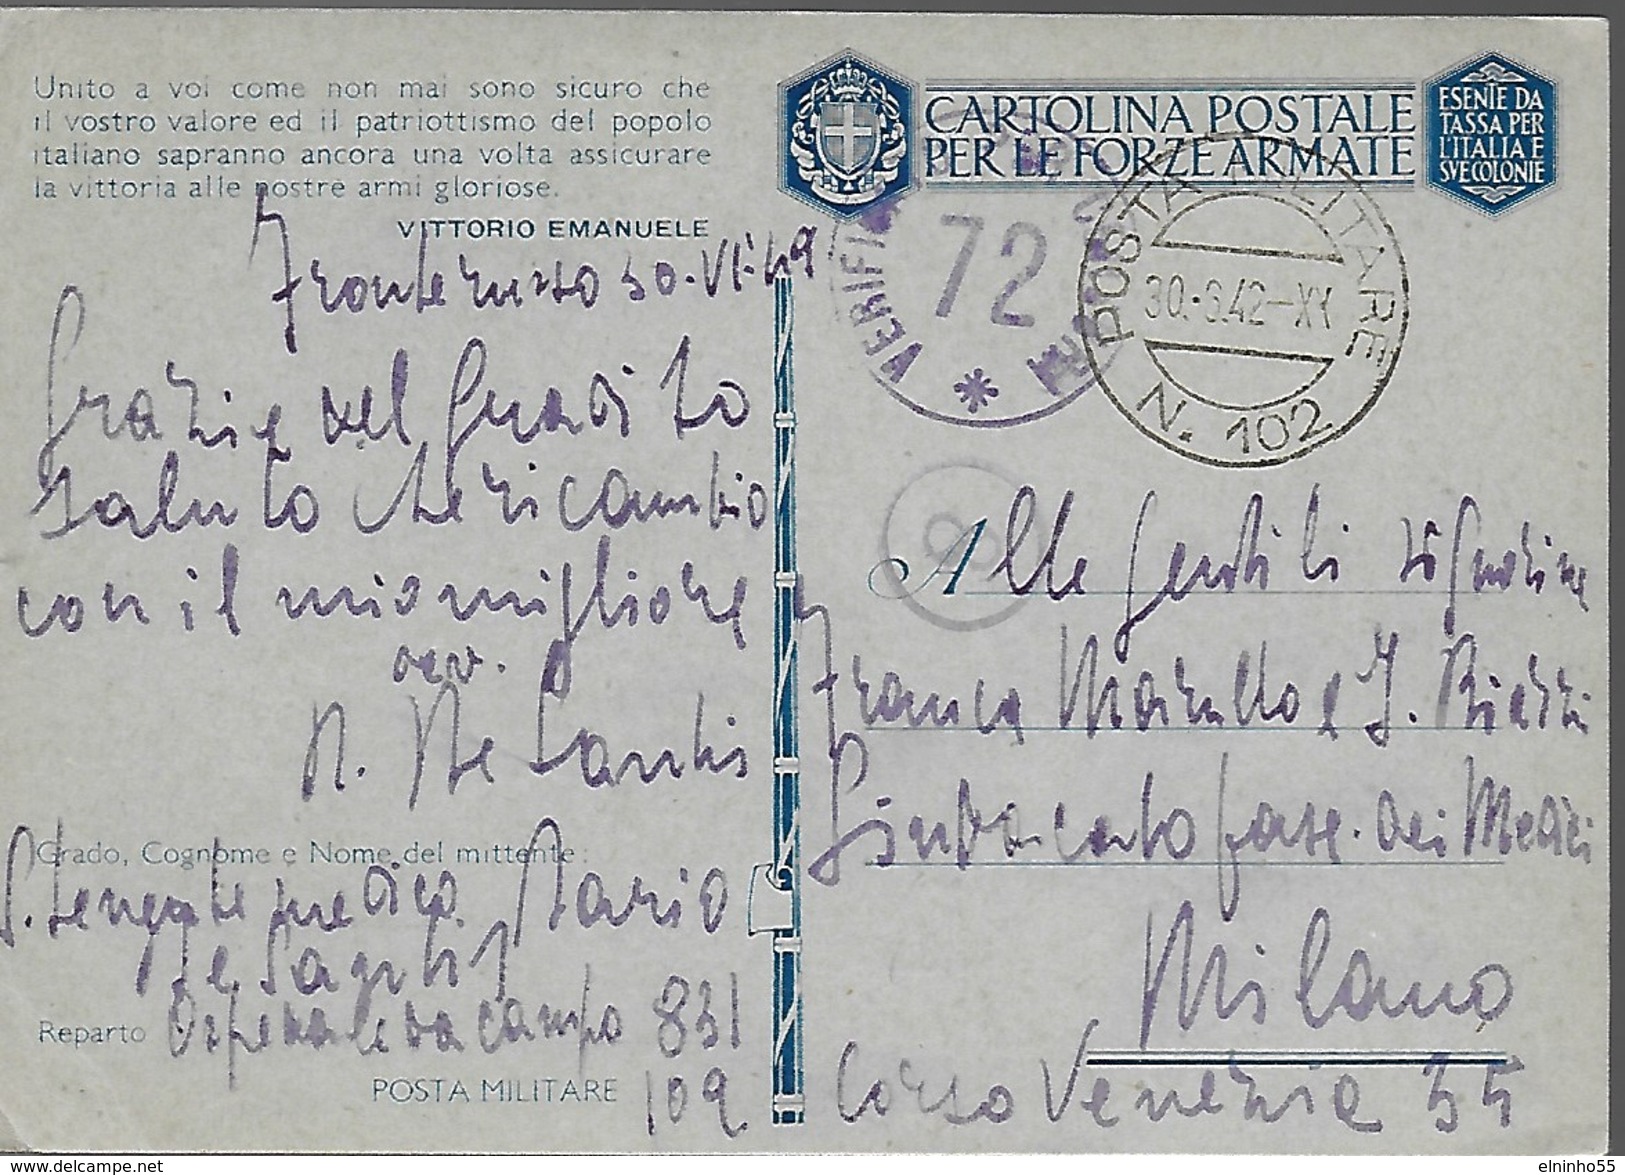 Unito a voi come non mai sono sicuro che
il vostro valore ed il patriottismo del popolo
italiano sapranno ancora una volta assicurare
la vittoria alle nostre armi gloriose.
VITTORIO EMANUELE
Fronte russo 30-VI-42
Grazie del gradito
saluto che ricambio
con il mio migliore
M. De Santis
Grado, Cognome e Nome del mittente:
S. tenente medico Mario
De Santis
Reparto Ospedale da campo 831
POSTA MILITARE 102
CARTOLINA POSTALE
PER LE FORZE ARMATE
ESENTE DA
TASSA PER
L'ITALIA E
SVE COLONIE
VERIFI
72
POSTA MILITARE
30.6.42-XX
N. 102
8
Alle gentili signorine
Franca Morello e J. Biazzi
Sindacato fasc. dei Medici
Milano
Corso Venezia 35
delcampe.net
elninho55